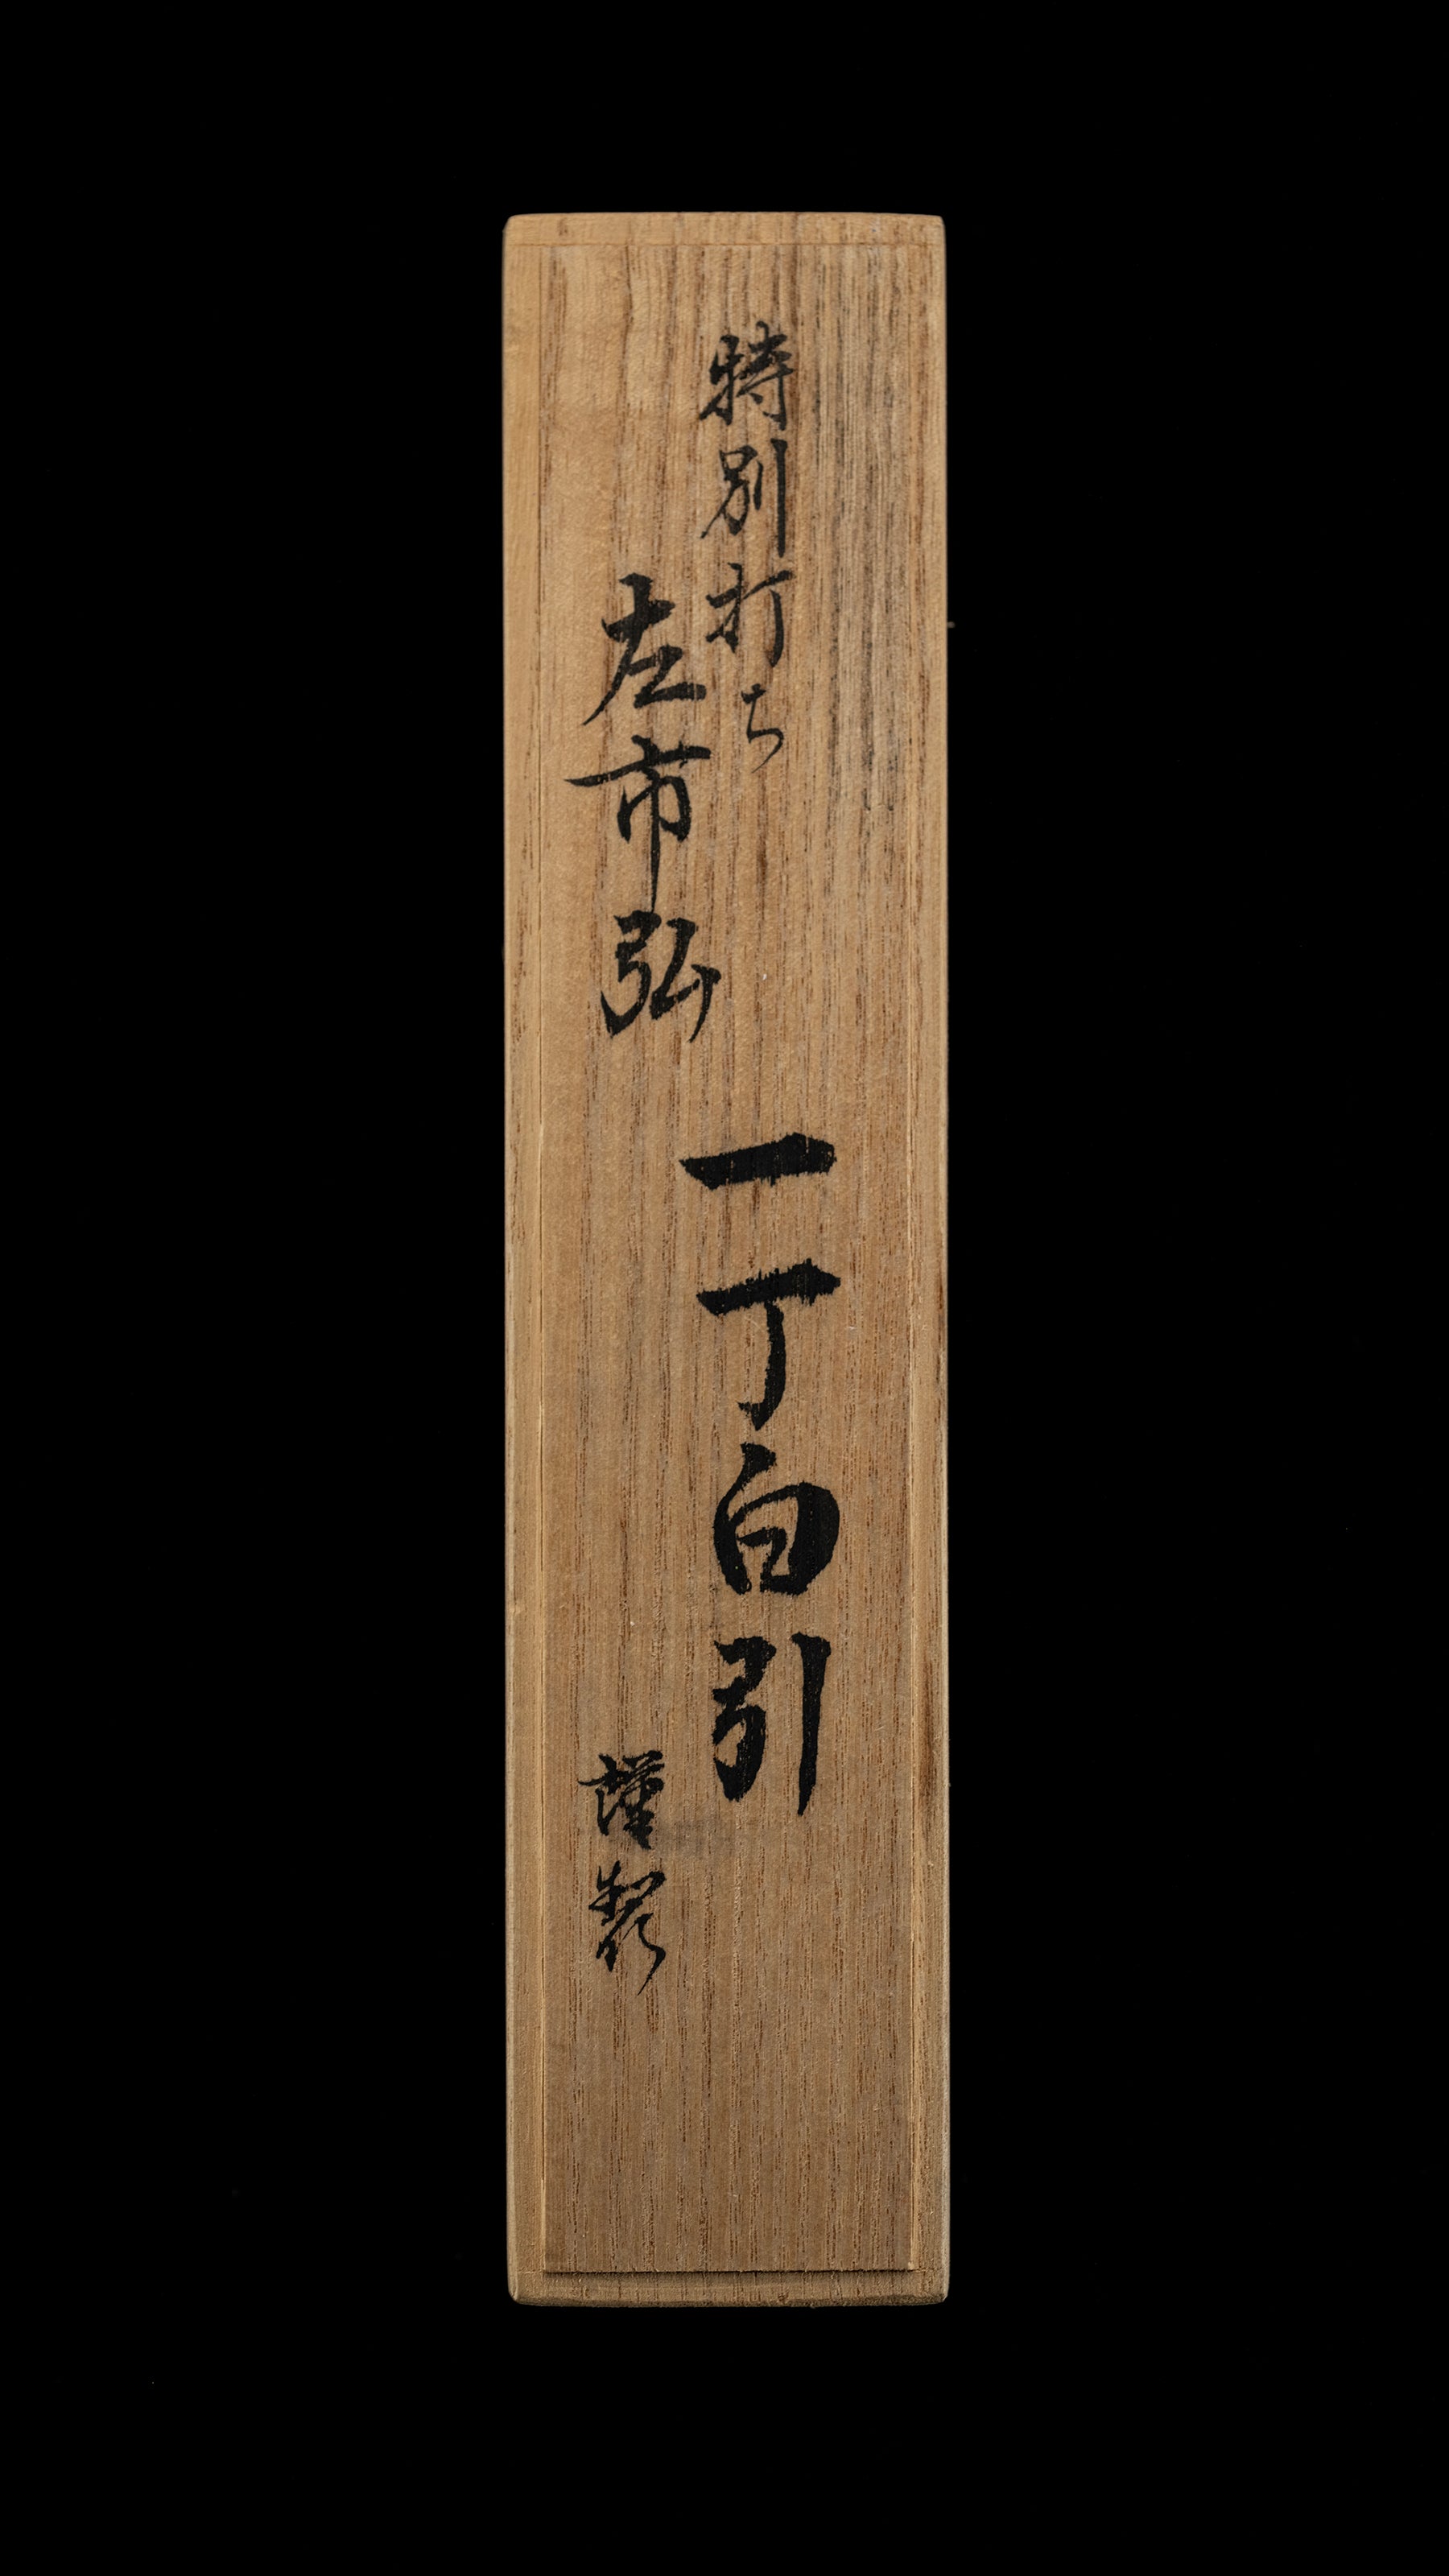 特別打ち
一丁白引
左市弘
謹製